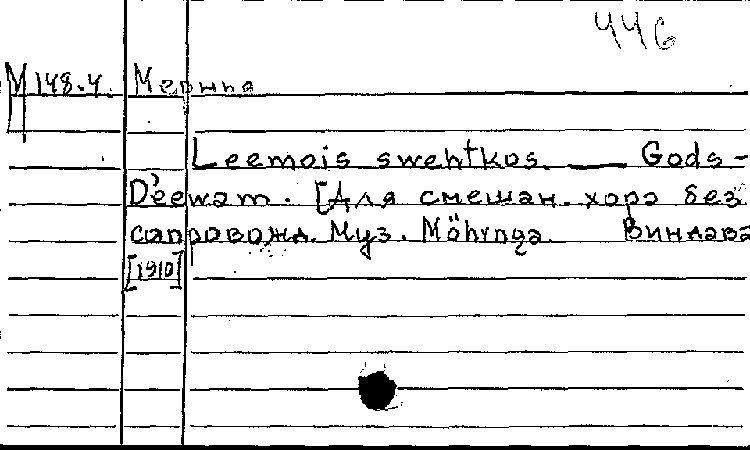 446
М 148.4. Мерньа
Leemois swehtkos. — Gods-
Deewam. [Для смешан. хора без
сапровожд. Муз. Möhrnga. Виндава
[1910]